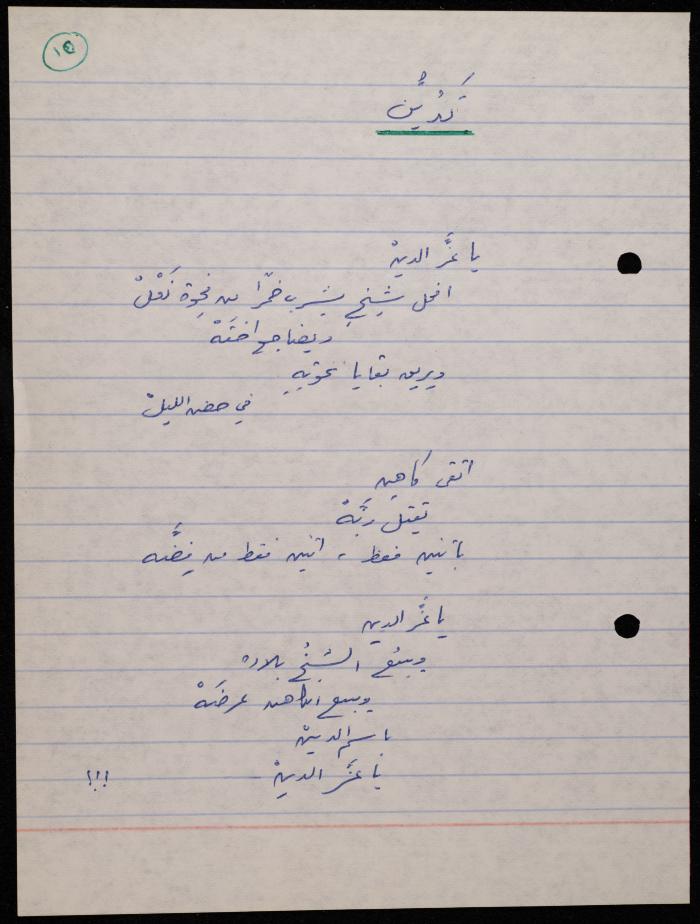 ١٥
تَديُّن
يا عَزَّ الدينْ
افحل شيخٍ يشرب خمرًا من فجوة نَعْلْ
ويضاجع اختَهْ
ويريق بقايا نخوتِهِ
في حضن الليلْ
اتقى كاهن
يقتل ربَّهْ
باثنين فقط ، اثنين فقط من فِضَّه
يا عَزَّ الدين
ويبيع الشيخُ بلاده
ويبيع الكاهن عرضَهْ
باسم الدينْ
يا عَزَّ الدينْ !!!